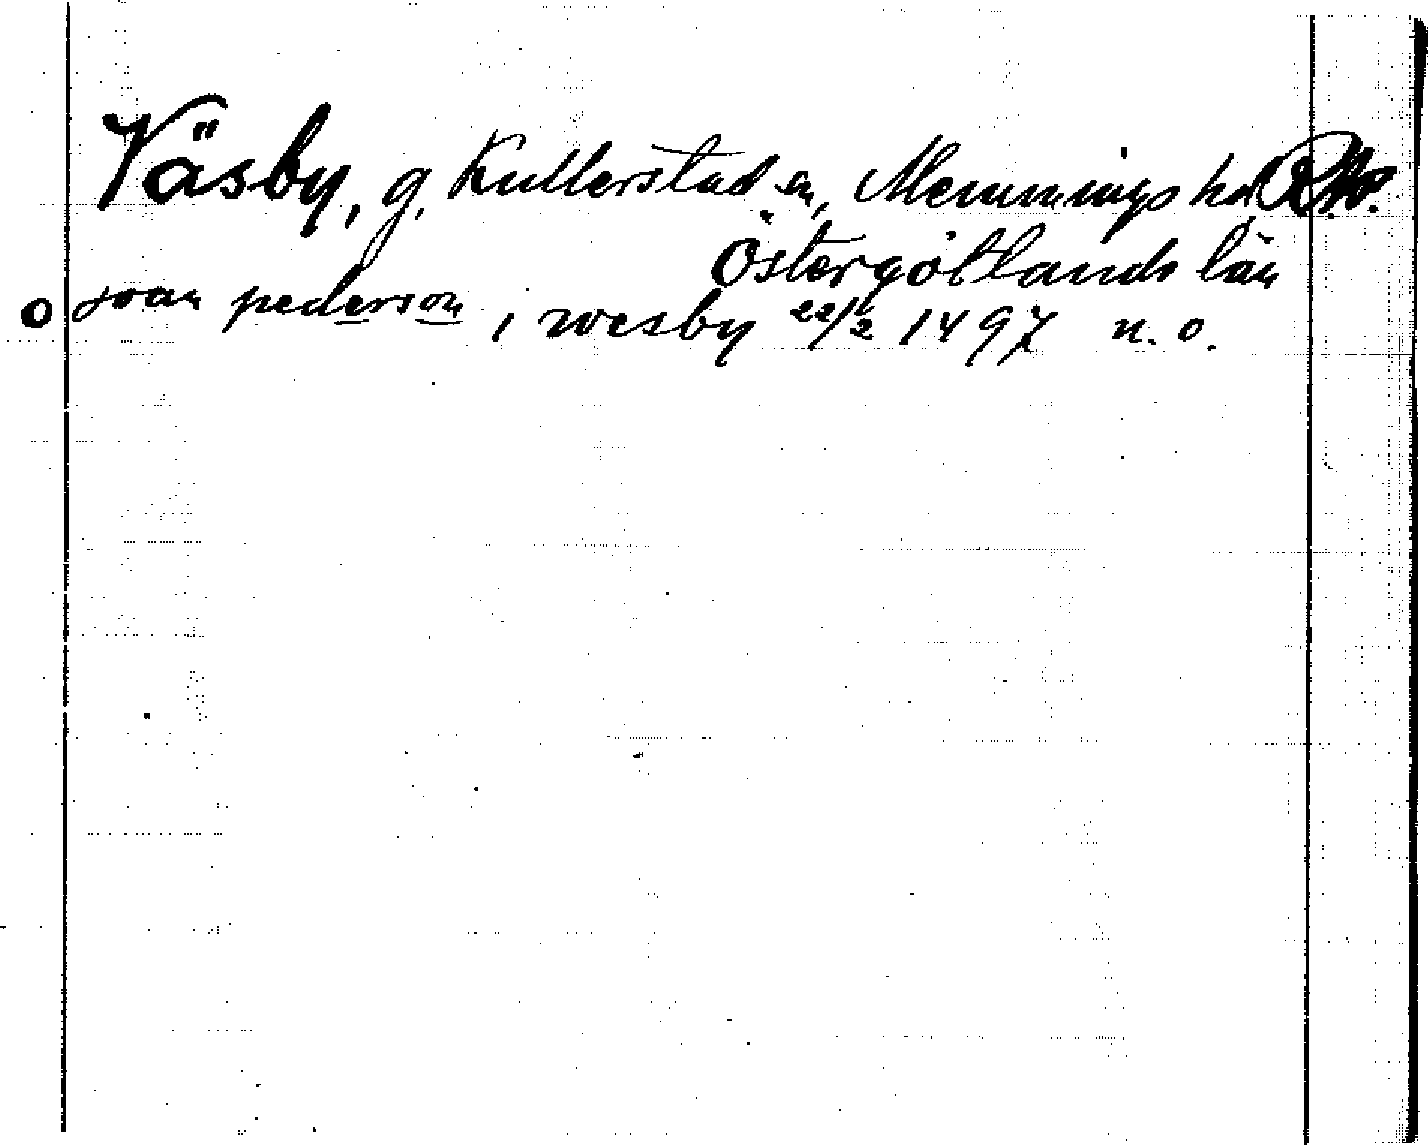 Väsby, g, Kullerstad sn, Memmings hd
Östergötlands län
o joan pederson, i wesby 22/2 1497 n. o.